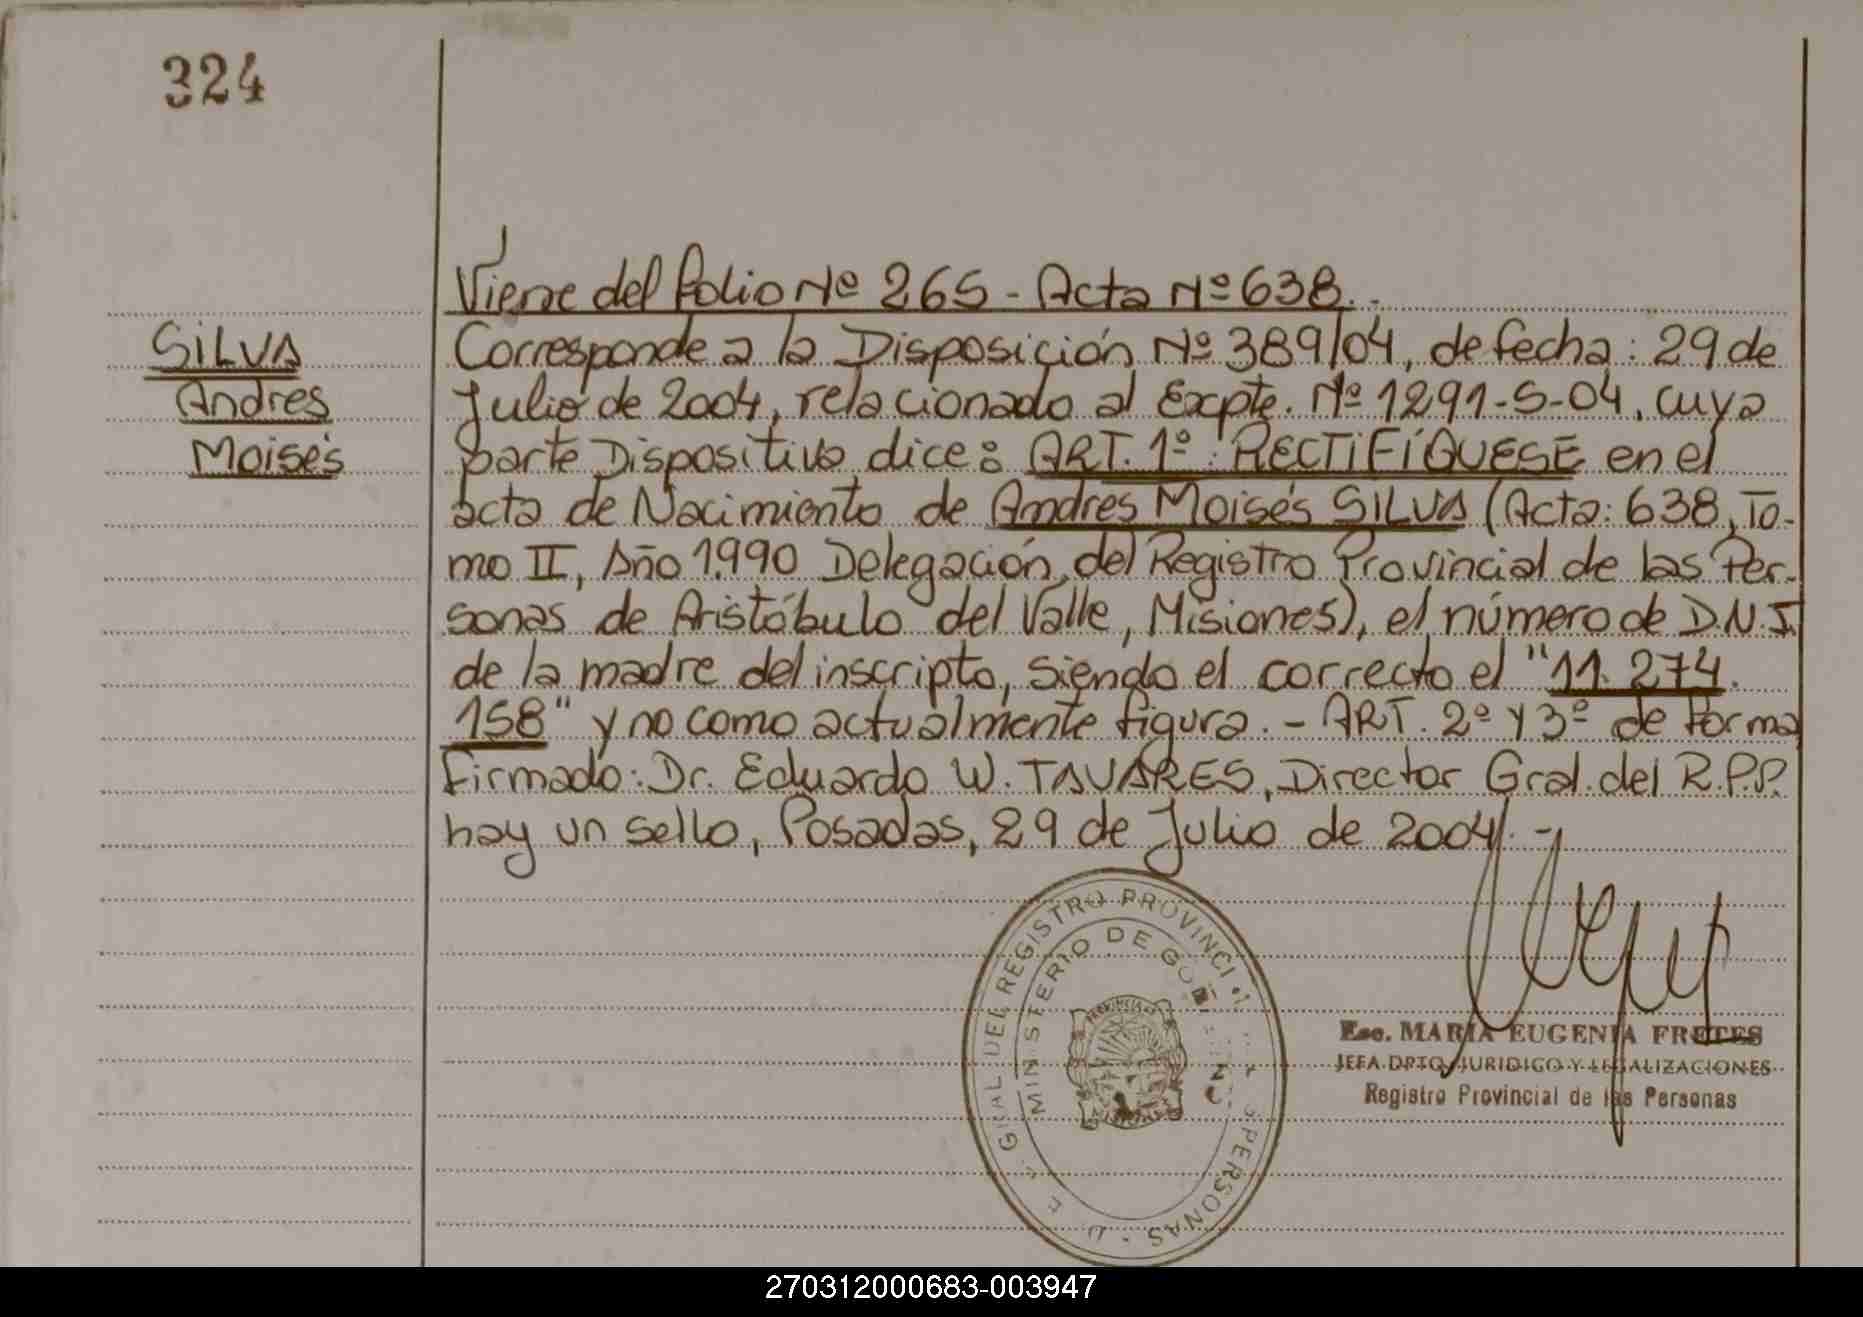 324
Viene del folio Nº 265 - Acta Nº 638.-
SILVA
Andres
Moisés
Corresponde a la Disposición Nº 389/04, de fecha: 29 de
Julio de 2004, relacionado al Expte. Nº 1291-S-04, cuya
parte Dispositiva dice: ART. 1º: RECTIFÍQUESE en el
acta de Nacimiento de Andres Moisés SILVA (Acta: 638, To-
mo II, Año 1.990 Delegación del Registro Provincial de las Per-
sonas de Aristóbulo del Valle, Misiones), el número de D.N.I.
de la madre del inscripto, siendo el correcto el "11.274.
158" y no como actualmente figura. - ART. 2º y 3º de forma
Firmado: Dr. Eduardo W. TAVARES, Director Gral. del R.P.P.
hay un sello, Posadas, 29 de Julio de 2004.-
GRAL DEL REGISTRO PROVINCI
PERSONAS
MINISTERIO DE GO
PROVINCIA
Esc. MARIA EUGENIA FRETES
JEFA DPTO. JURIDICO Y LEGALIZACIONES
Registro Provincial de las Personas
270312000683-003947